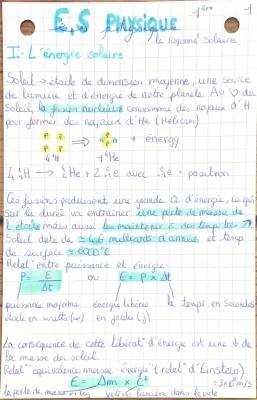 1ère 1
E.S PHYSIQUE
le rayonnemt solaire
I- L'énergie solaire
Soleil → étoile de dimension moyenne, une source
de lumière et d'énergie de notre planète. Au ♡ du
Soleil, la fusion nucléaire consomme des noyaux d'H
pour former des noyaux d'He (Hélium)
P P P P → P P + énergy
4 H → He
4 H → He + 2 e avec e = positron
Ces fusions produisent une grande Q. d'énergie, ce qui
sur la durée va entraîner une perte de masse de
l'étoile mais aussi les maintenir à des temp. très ↗
Soleil date de ≈ 4,6 milliards d'années et temp
de surface ≈ 6000°C
Relat° entre puissance et énergie:
P = E / Δt ou E = P × Δt
puissance moyenne énergie libérée le temps en secondes
étoile en watts (w) en joule (j)
La conséquence de cette libérat° d'énergie est une ↓ de
la masse du soleil.
Relat° équivalence masse-énergie "(relat° d'Einstein)
E = Δm × c² = 3×10⁸ m/s
la perte de masse en kg vitesse lumière dans le vide